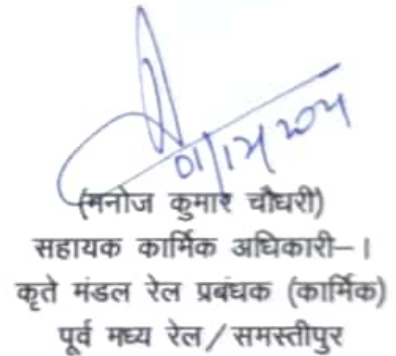 (मनोज कुमार चौधरी)
सहायक कार्मिक अधिकारी–।
कृते मंडल रेल प्रबंधक (कार्मिक)
पूर्व मध्य रेल/समस्तीपुर